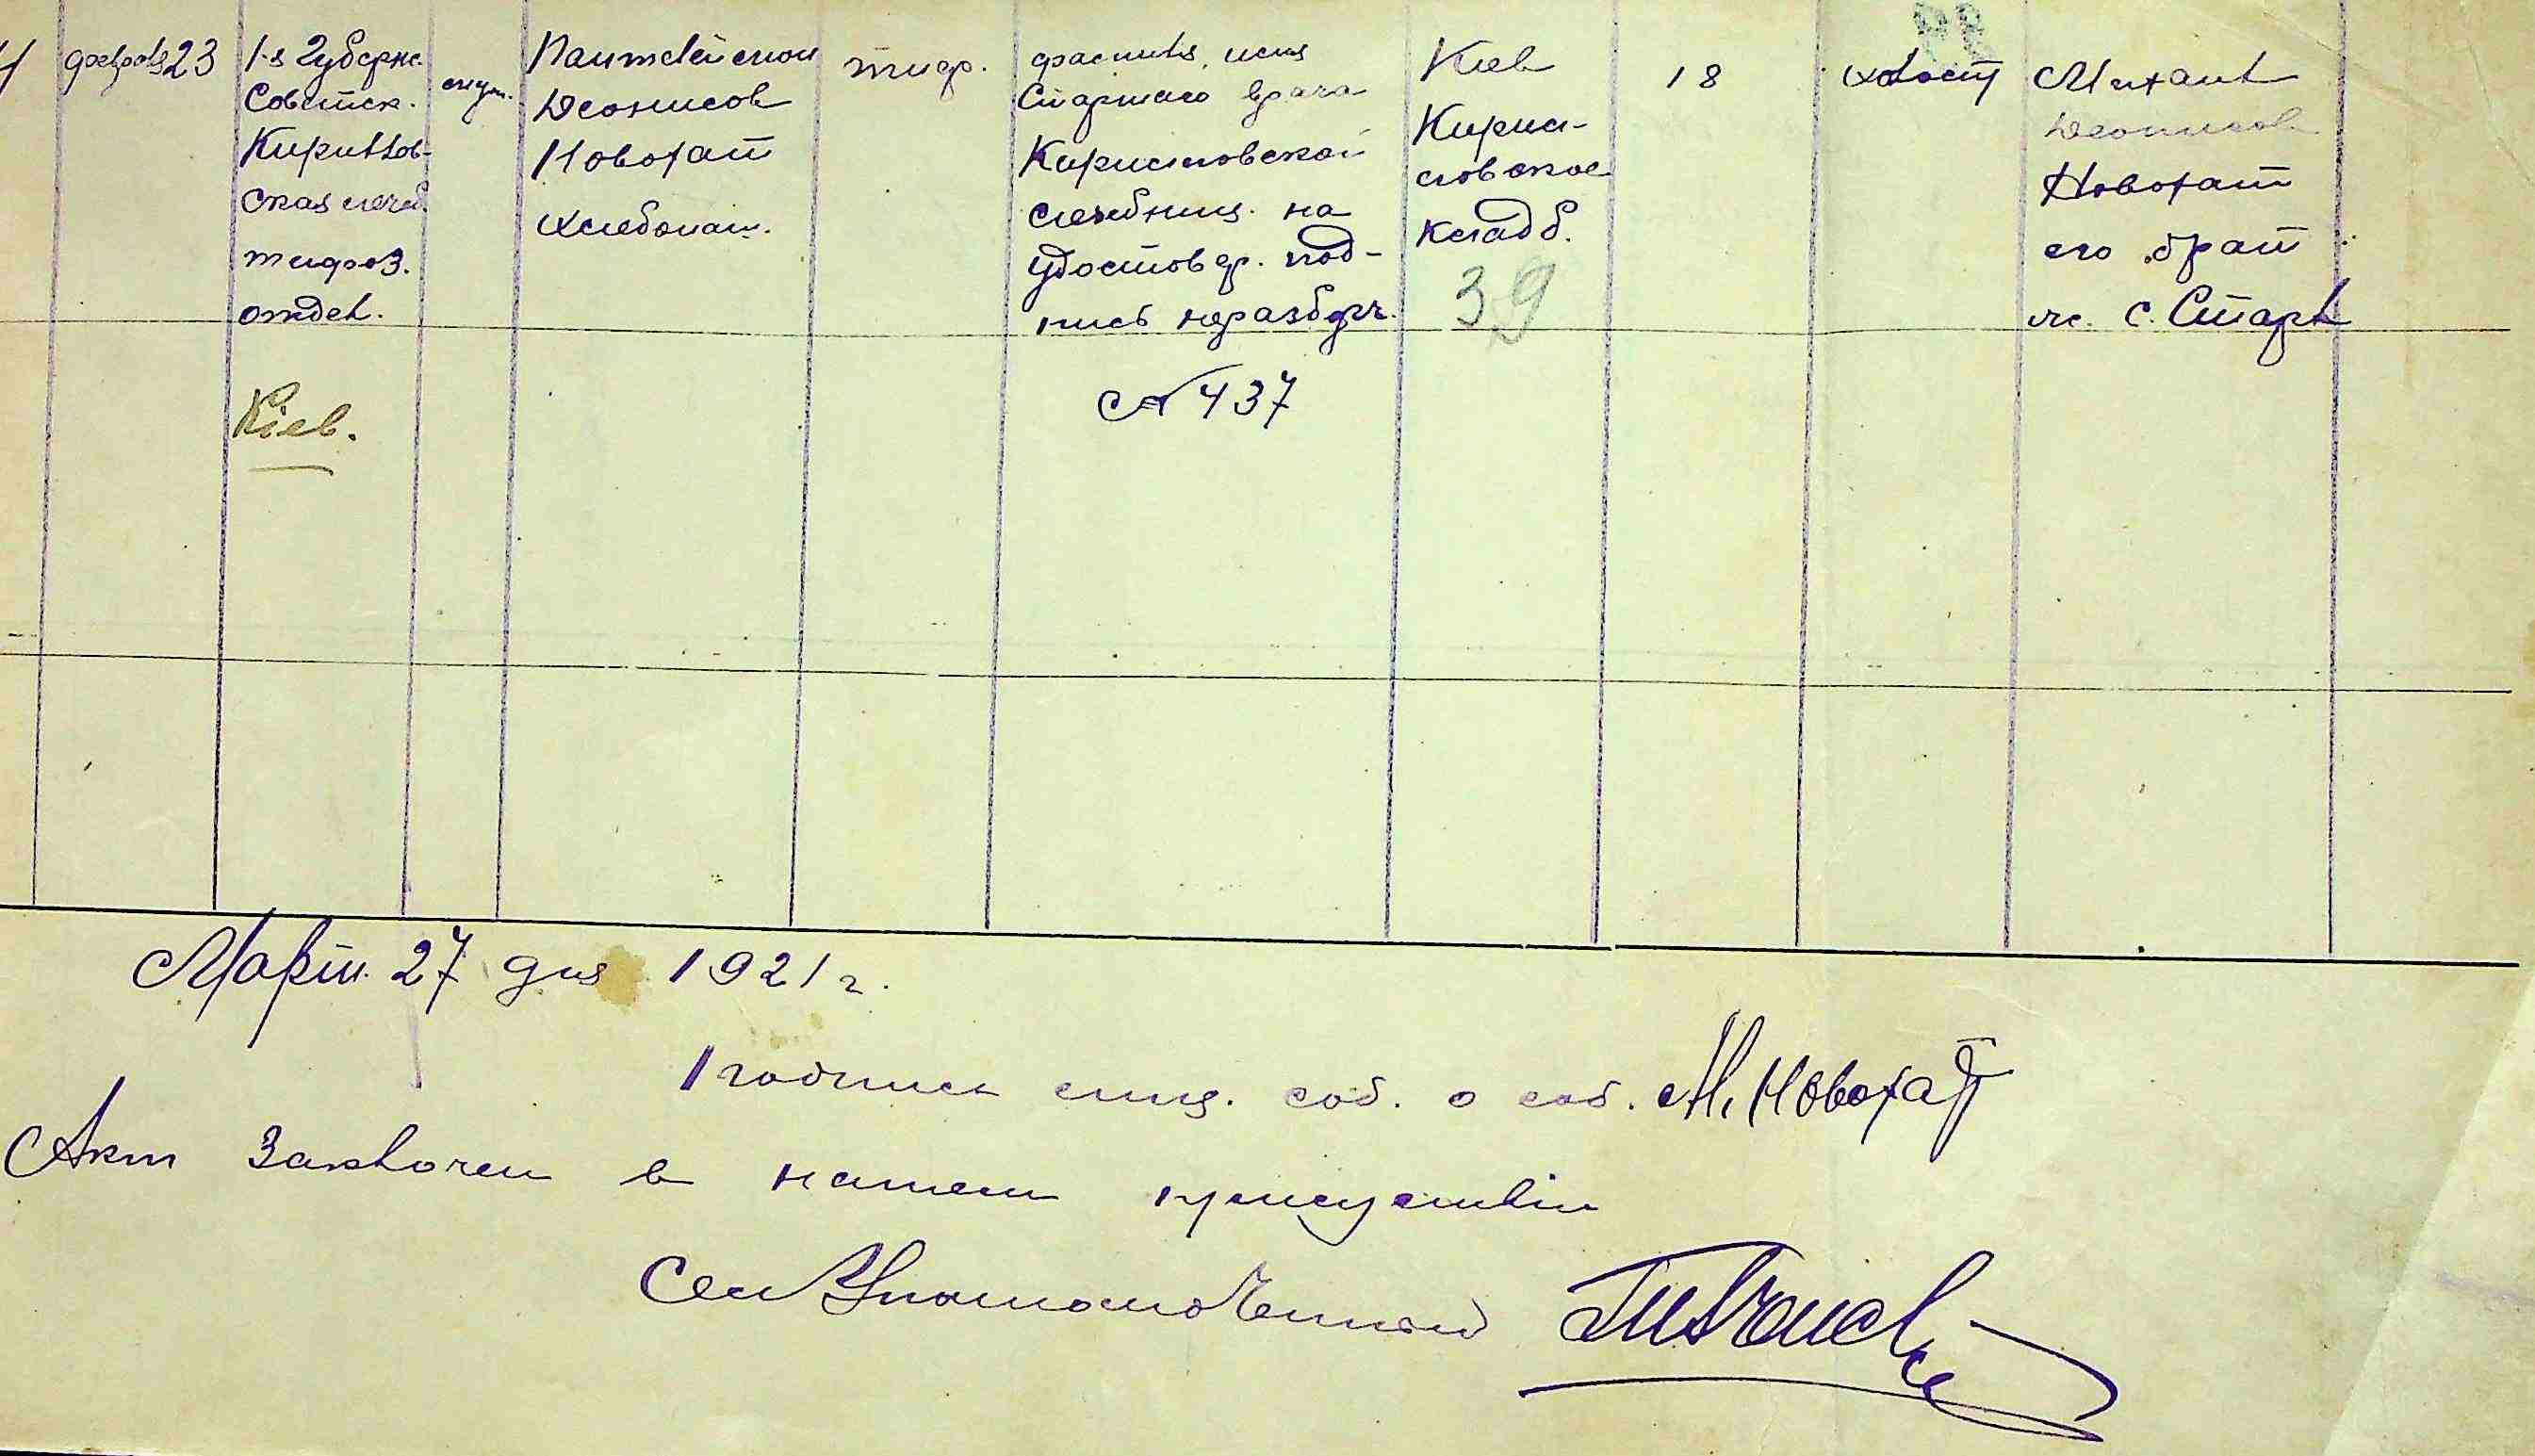 февраля 23
1-я Губернс.
Советск.
Кириллов-
ская лечеб.
тифоз.
отдел.
Кіев.
Пантелеймон
Деонисов
Новохат
Хлебопаш.
тиф.
фамилія, имя
Старшаго врача
Кирилловской
лечебниц. на
удостовер. под-
пись неразборч.
№ 437
Киев
Кирил-
ловское
кладб.
39
18
холост
Михаил
Деонисов
Новохат
его брат
ж. с.
Март. 27 дня 1921 г.
Подпись лиц. соб. о соб. М. Новохат
Акт заключен в нашем присутствіи
Сек Уполномоченный